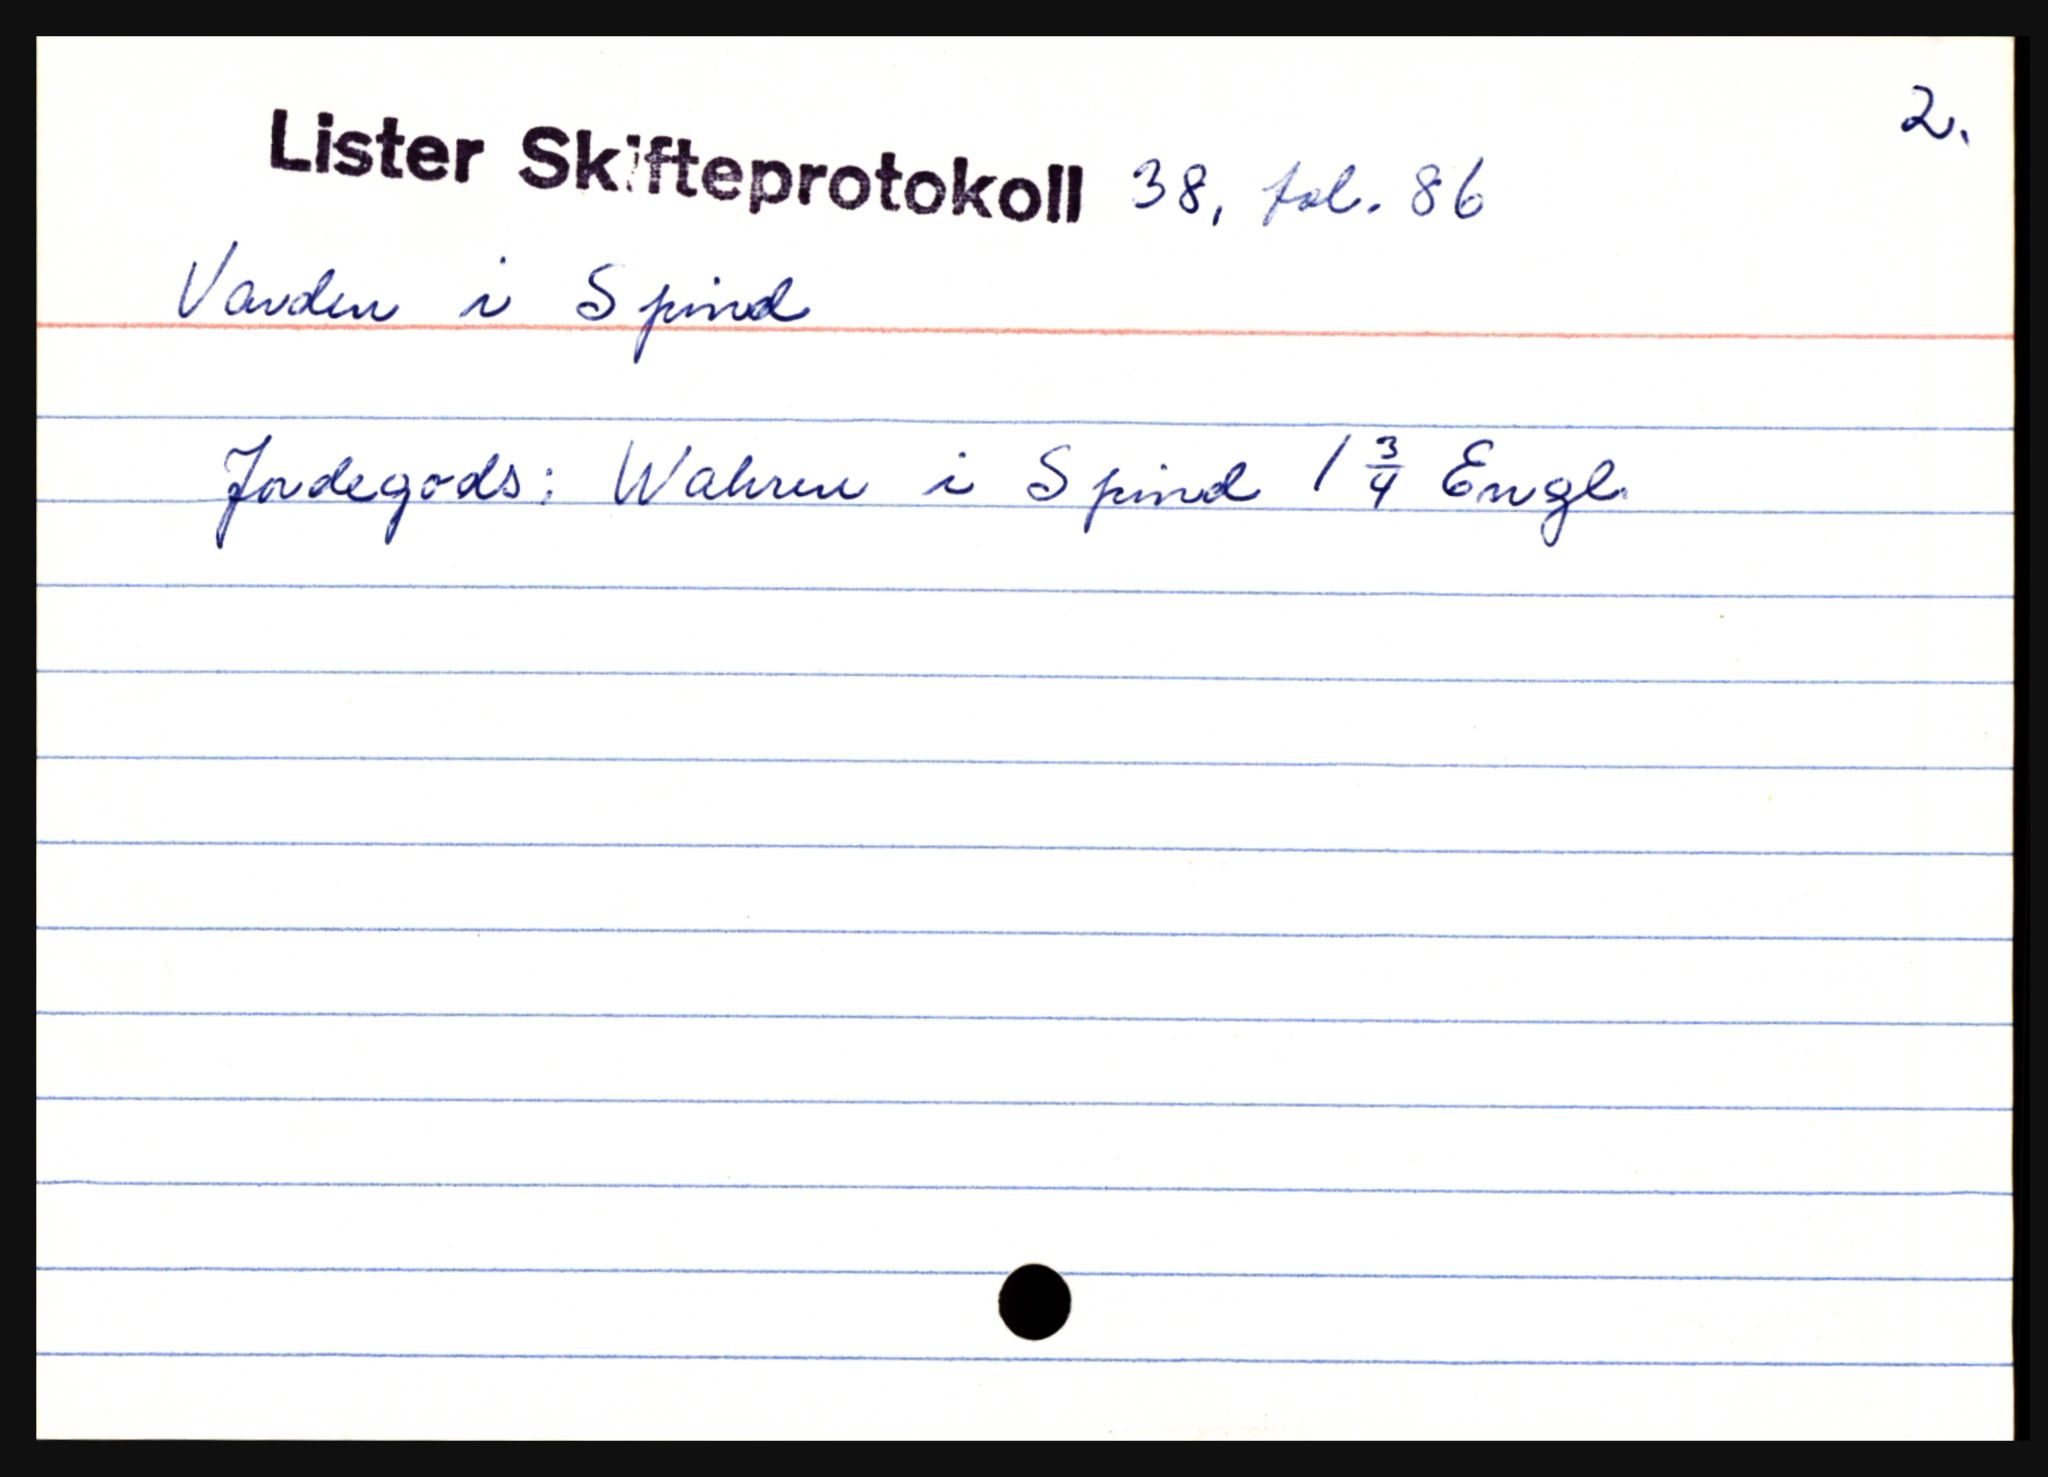 2.
Lister Skifteprotokoll 38, fol. 86
Varden i Spind
Jordegods: Wahren i Spind 1 3/4 Engl.